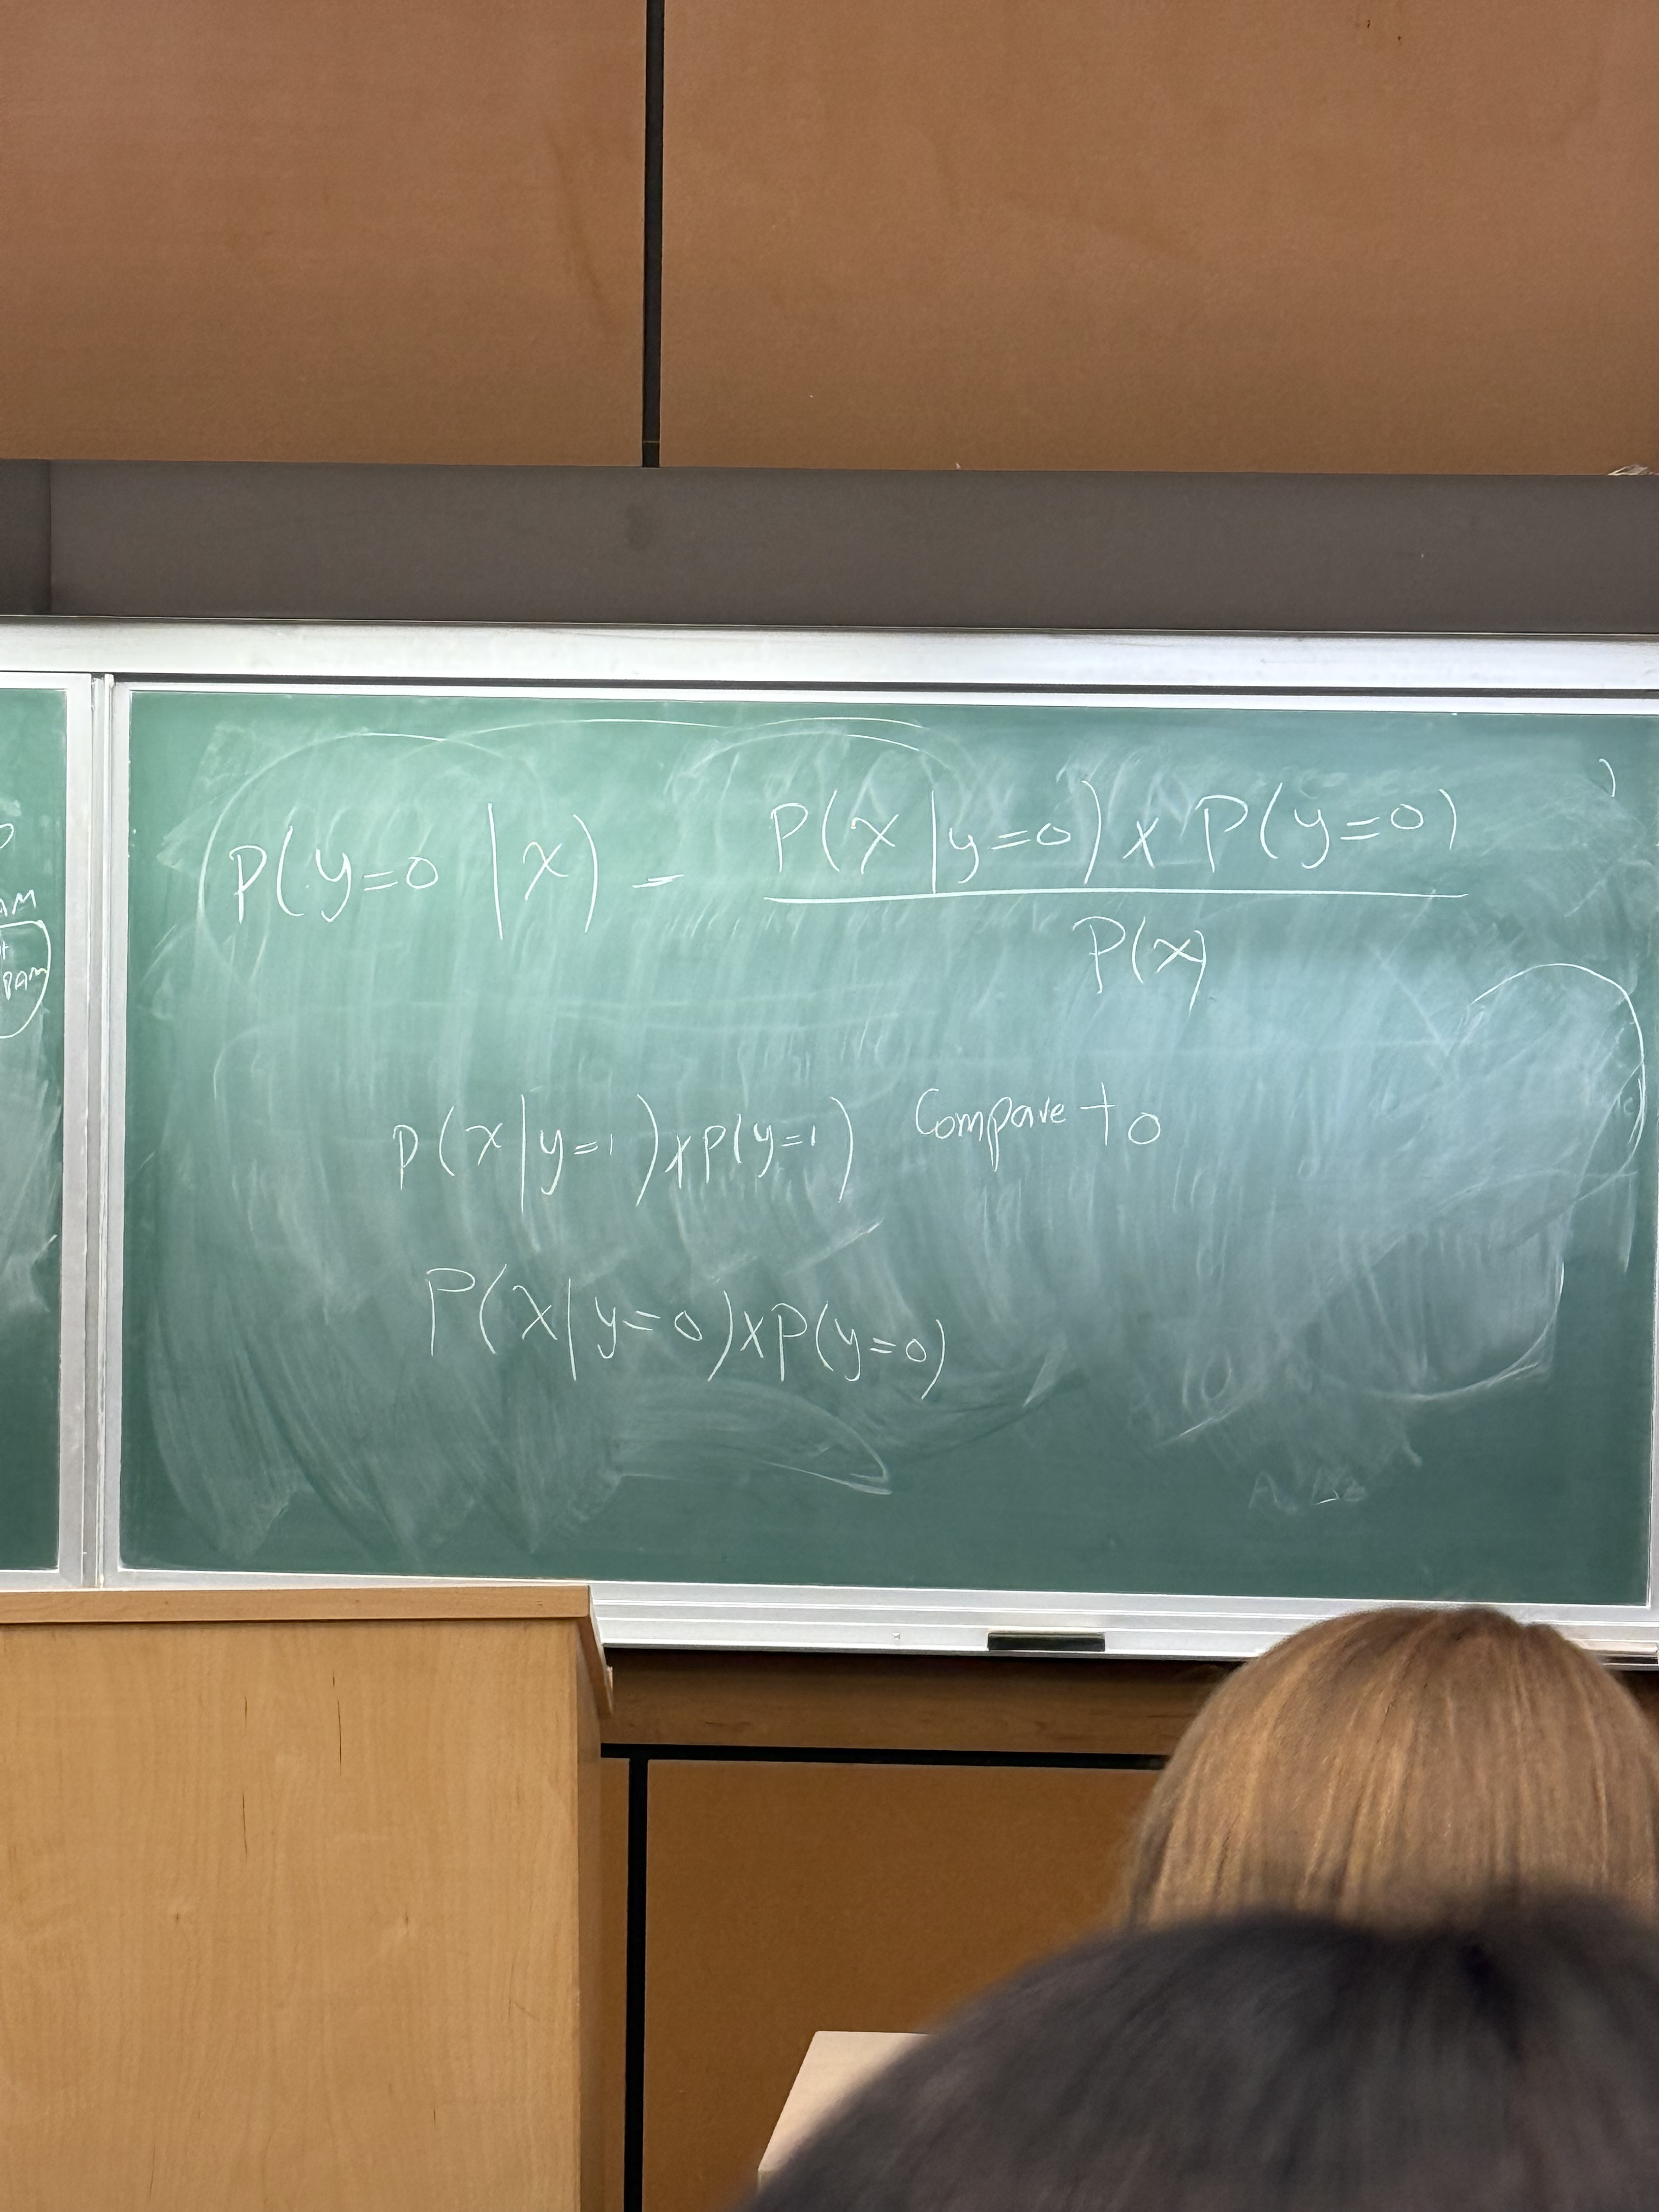 AM
PAM
P(y=0 | x) = P(x|y=0) x P(y=0)
P(x)
P(x|y=1) x P(y=1) Compare to
P(x|y=0) x P(y=0)